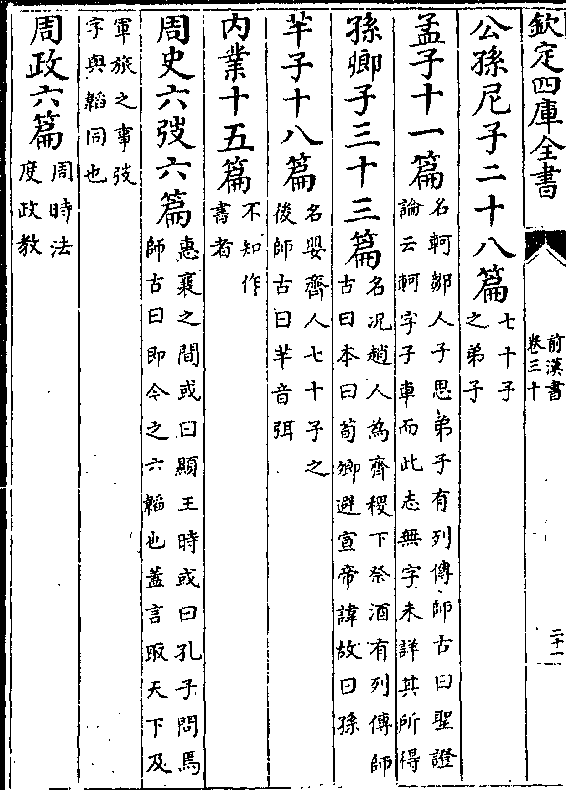 欽定四庫全書
前漢書
卷三十
二十一
公孫尼子二十八篇
七十子
之弟子
孟子十一篇
名軻鄒人子思弟子有列傳師古曰聖證
論云軻字子車而此志無字未詳其所得
孫卿子三十三篇
名况趙人為齊稷下祭酒有列傳師
古曰本曰荀卿避宣帝諱故曰孫
芈子十八篇
名嬰齊人七十子之
後師古曰芈音弭
内業十五篇
不知作
書者
周史六弢六篇
惠襄之間或曰顯王時或曰孔子問焉
師古曰即今之六韜也蓋言取天下及
軍旅之事弢
字與韜同也
周政六篇
周時法
度政教